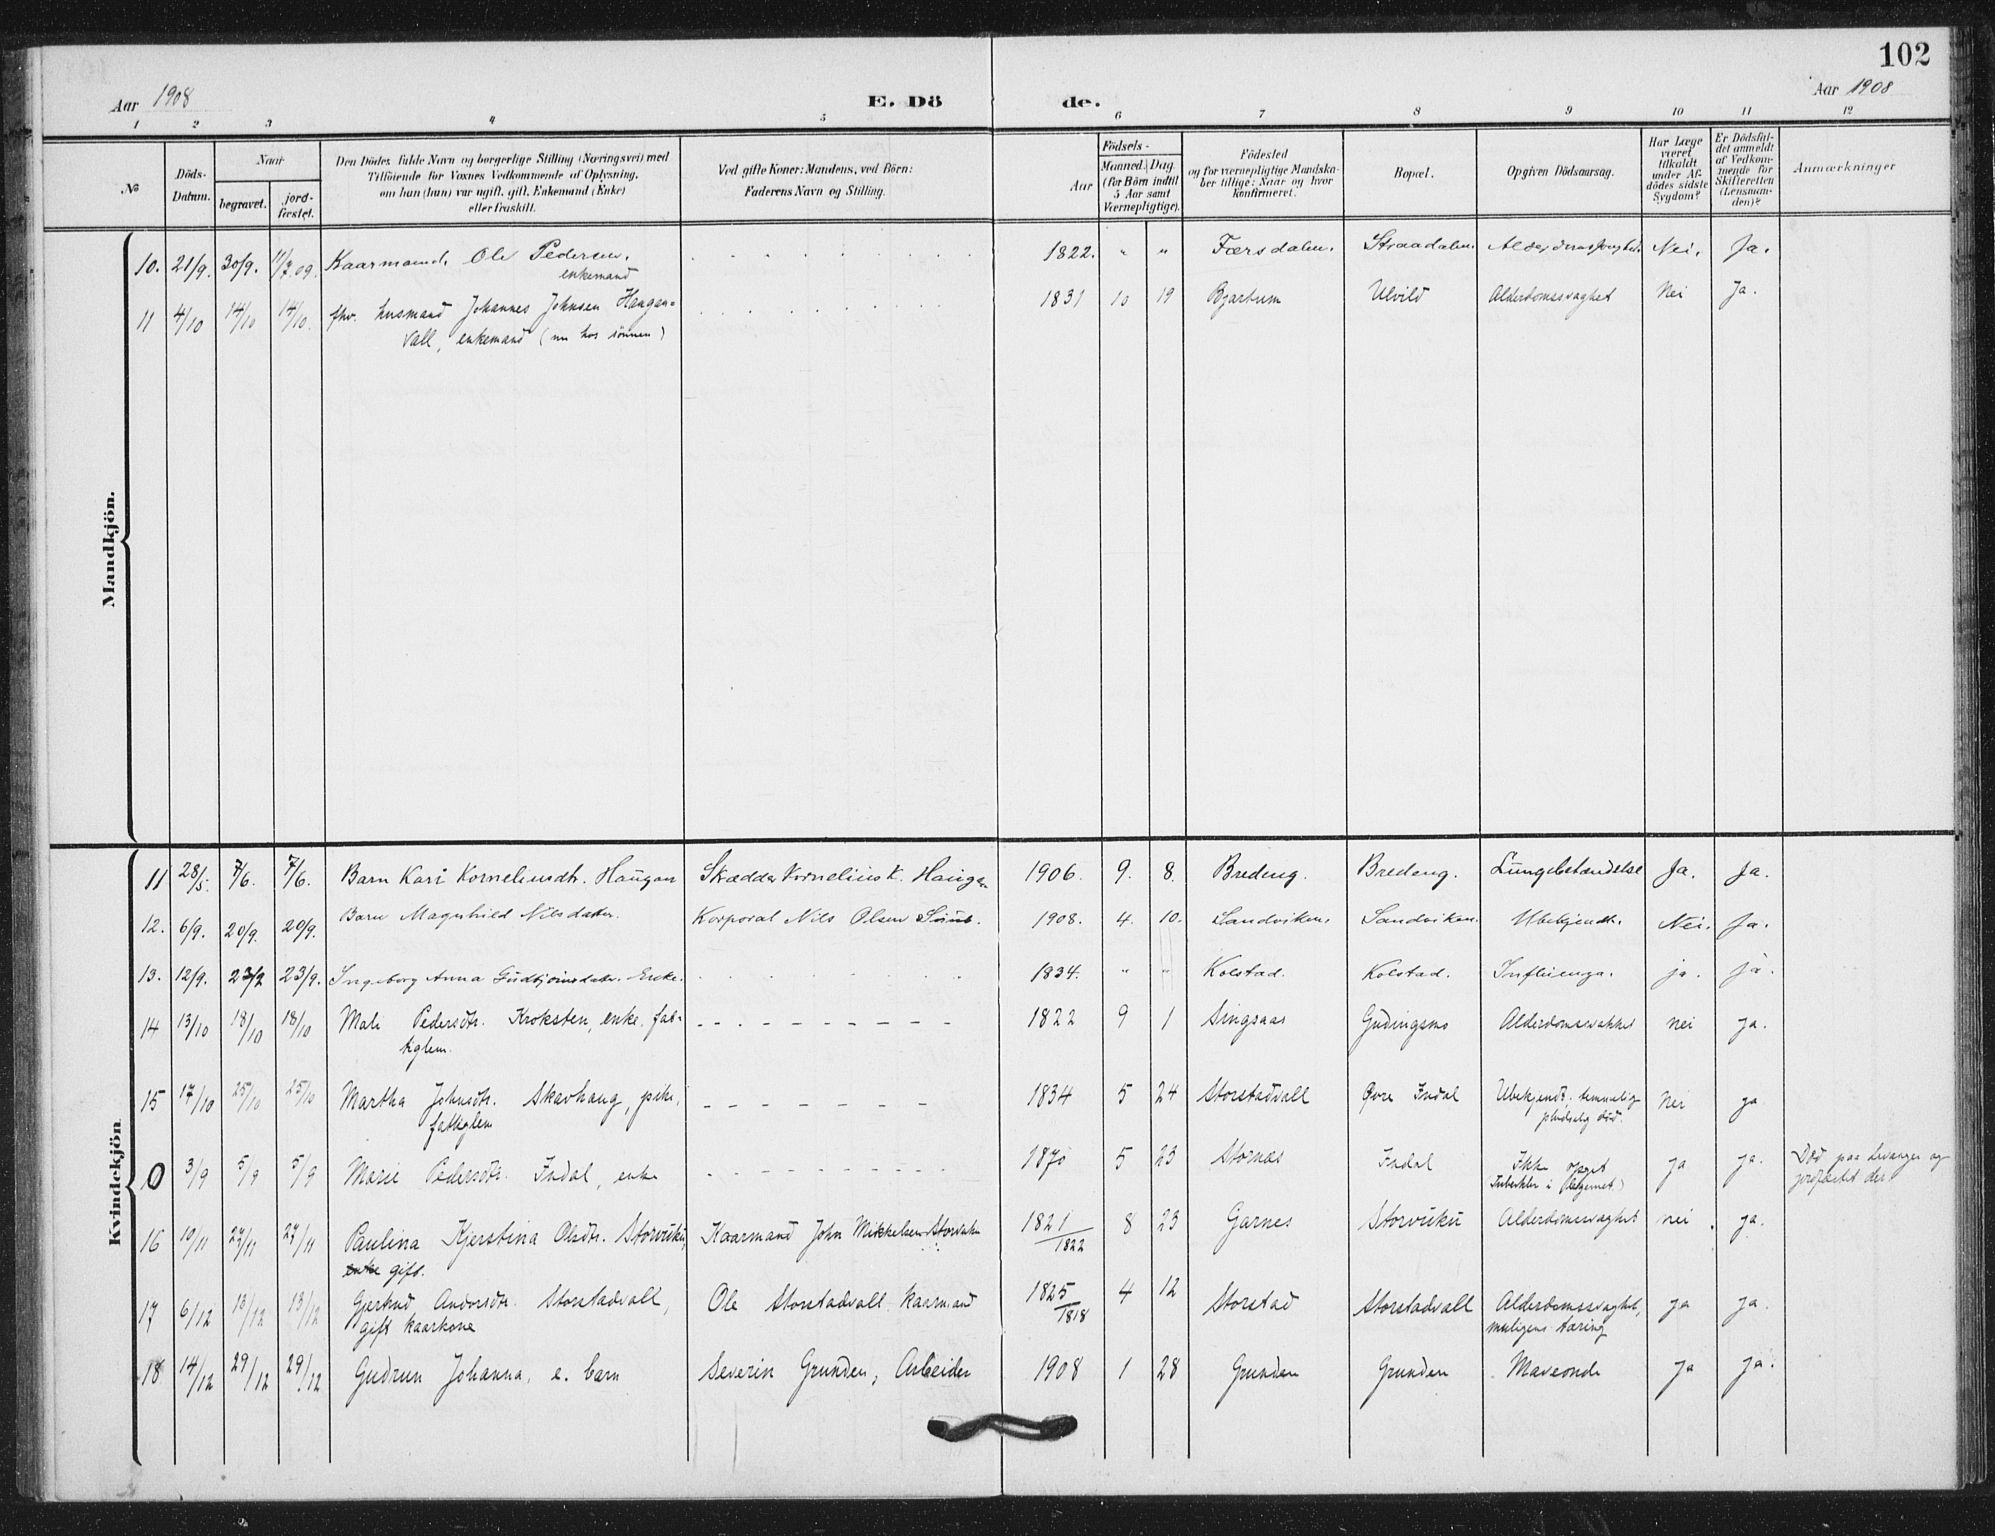 102
Aar 1908 E. Dö de. Aar 1908
1 2 3 4 5 6 7 8 9 10 11 12
No
Döds-
Datum.
Naar
begravet.
jord-
fæstet.
Den Dödes fulde Navn og borgerlige Stilling (Næringsvei) med
Tilföiende for Voxnes Vedkommende af Oplysning,
om han (hun) var ugift, gift, Enkemand (Enke)
eller fraskilt.
Ved gifte Koner: Mandens, ved Börn:
Faderens Navn og Stilling.
Födsels-
Aar
Maaned. Dag.
(for Börn indtil
5 Aar samt
Værnepligtige).
Födested
og for værnepligtige Mandska-
ber tillige: Naar og hvor
konfirmeret.
Bopæl.
Opgiven Dödsaarsag.
Har Læge
været
tilkaldt
under Af-
dödes sidste
Sygdom?
Er Dödsfal-
det anmeldt
af Vedkom-
mende for
Skifteretten
(Lensman-
den)?
Anmærkninger
Mandkjön.
10. 21/9. 30/9. Kaarmand. Ole Pedersen. 1822. " " Færsdalen. Straadalen. Nei. Ja.
enkemand
11 4/10 14/10 14/10. fhv. husmand Johannes Johnsen Haugan= 1831 10 19 Bjartum Ulvild Alderdomssvaghet Nei Ja.
vall, enkemand (nu hos sönnen)
Kvindekjön.
11 28/5. 7/6. 7/6. Barn Kari Kornelinsdtr. Haugan Skrædder Kornelius K. Haugan 1906. 9. 8. Bredeng. Bredeng. Lungebetændelse Ja. Ja.
12. 6/9. 20/9. 20/9. Barn Magnhild Nilsdatter. Korporal Nils Olsen 1908. 4. 10. Sandviken. Sandviken. Ubekjendt. Nei. Ja.
13. 12/9. 23/9 23/9. Ingeborg Anna Enke. 1834. " " Kolstad. Kolstad. Influenza. ja. ja.
14 13/10 18/10 18/10 Mali Pedersdtr. Kroksten, enke, fat- 1822 9 1 Singsaas Gudingsmo nei ja.
tiglem.
15 17/10 25/10 25/10 Martha Johnsdtr. Skavhaug, pike, 1834 5 24 Storstadvall Övre Indal Ubekjendt. temmelig Nei ja
fattiglem pludselig död.
0 3/9 5/9 5/9 Marie Pedersdtr. Indal, enke 1870 5 23 Stornes Indal Ikke opget ja ja. Död paa Levanger og
(Tuberkler i ) jordfæstet der.
16 10/11 27/11 27/11 Paulina Kjerstina Olsdtr. Storvuku, Kaarmand John Mikkelsen Storvuku 1821/1822 8 23 Garnes Storvuku Alderdomssvaghet nei ja.
enke gift.
17 6/12 13/12 13/12 Gjertrud Andersdtr. Storstadvall, Ole Storstadvall, kaarmand 1825/1818 4 12 Storstad Storstadvall Alderdomssvaghet, ja ja
gift kaarkone muligens tæring
18 14/12 29/12 29/12 Gudrun Johanna, e. barn Severin Grunden, Arbeider 1908 1 28 Grunden Grunden Maveonde ja ja.